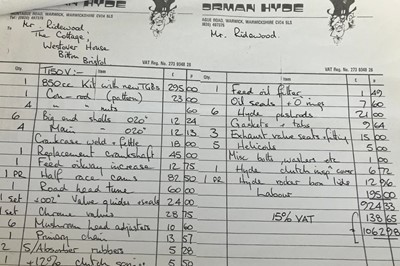 NORMAN HYDE
ROAD, WARWICK, WARWICKSHIRE CV34 5LS
Mr. Ridewood,
The Cottage,
Westover House,
Bitton
Bristol
VAT Reg. No. 273 8046 38
T150V:-
Item £ p
1 850cc Kit with new TGBs 295 00
1 Con-rod (pattern) 23 00
4 " " nuts 60
6 Big end shells .020" 12 24
4 Main .020" 12 13
Crankcase weld + fettle 18 00
1 Replacement crankshaft 45 00
1 Feed oilway increase 12 75
1 PR Half race cam 82 50
1 Road head tune 60 00
1 set +.002" Valve guides 24 00
1 set Chrome valves 28 75
6 Mushroom head adjusters 10 60
1 Primary chain 13 57
2 S/Absorber rubbers 5 28
1 +12% clutch 5 50
NORMAN HYDE
ROAD, WARWICK, WARWICKSHIRE CV34 5LS
Mr. Ridewood.
VAT Reg. No. 273 8046 38
Item £ p
1 Feed oil filter 1 49
Oil seals + 'O' rings 7 60
6 Hyde pushrods 21 00
Gaskets + tabs 9 64
3 Exhaust valve seats fitting 15 00
5 Helicoils 5 00
Misc bolts, washers etc 1 00
1 Hyde clutch insp cover 6 72
1 PR Hyde rocker box 12 96
Labour 195 00
924 33
15% VAT 138 65
1062 98